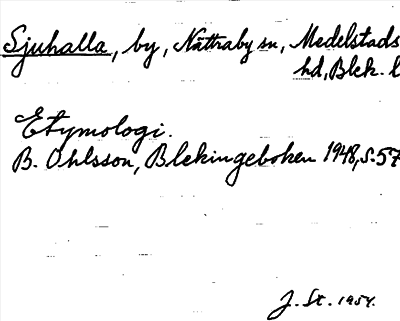 Sjuhalla, by, Nättraby sn, Medelstads
hd, Blek. l
Etymologi.
B. Ohlsson, Blekingeboken 1948, s. 57
J. St. 1954.